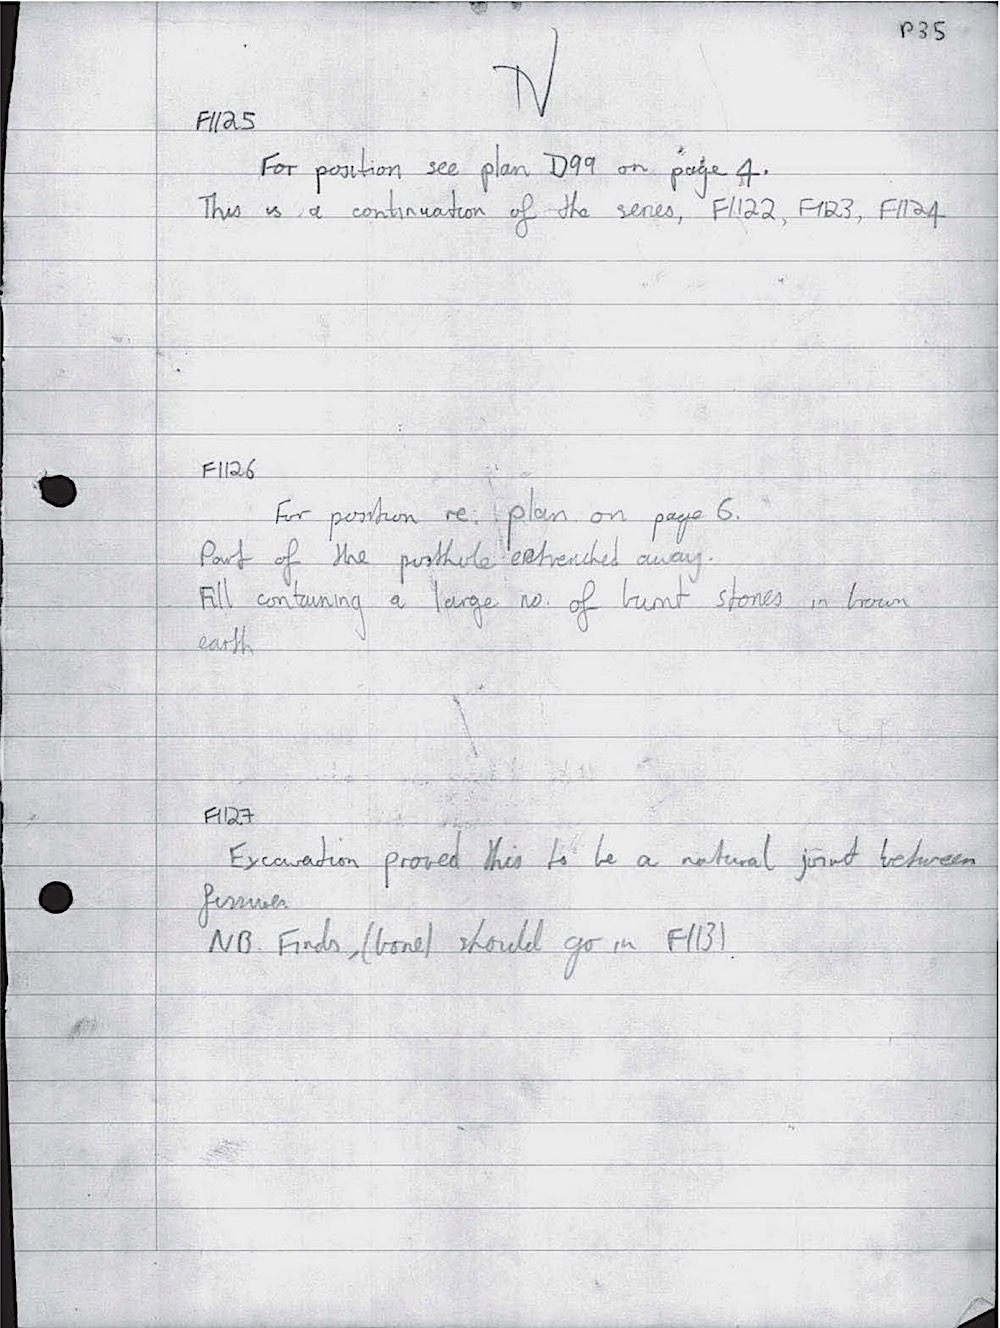 P35
F1125
For position see plan D99 on page 4.
This is a continuation of the series, F1122, F1123, F1124
F1126
For position re. plan on page 6.
Part of the posthole entrenched away.
Fill containing a large no. of burnt stones in brown
earth
F1127
Excavation proved this to be a natural joint between
NB. Finds, (bone) should go in F1131